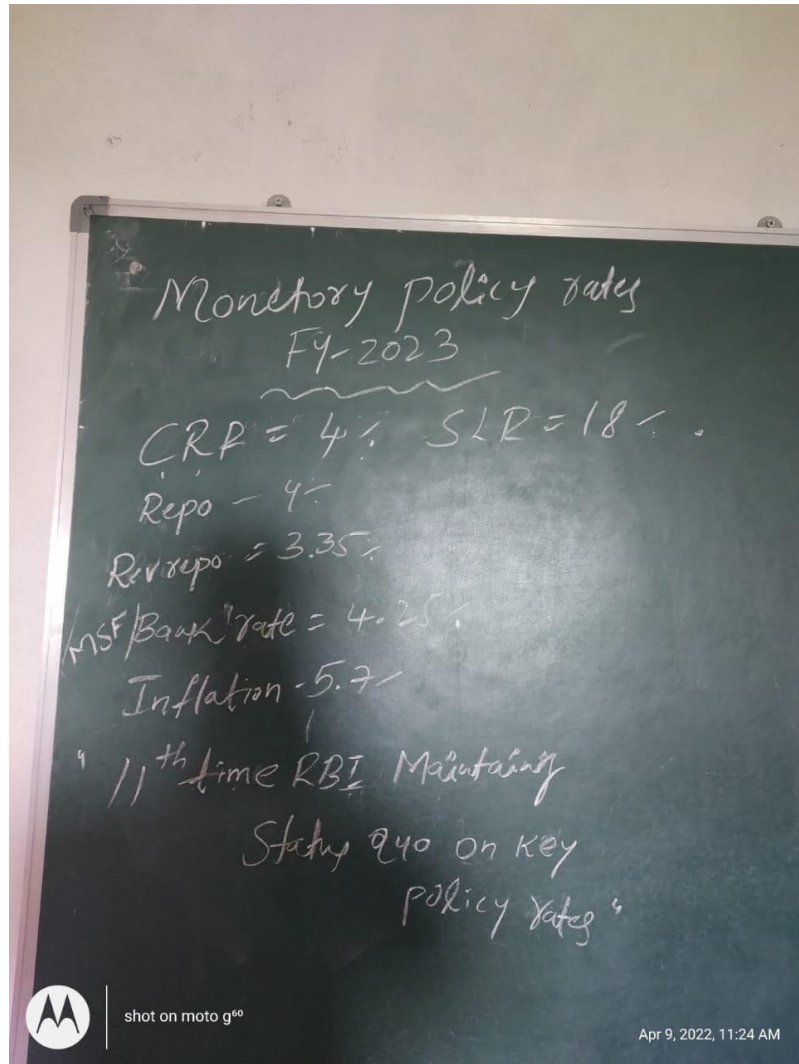 Monetory policy rates
FY-2023
CRR = 4% SLR = 18%.
Repo - 4%
Rev repo = 3.35%
MSF/Bank rate = 4.25%
Inflation - 5.7%
"11th time RBI Maintaing
Status quo on Key
policy rates"
shot on moto g60
Apr 9, 2022, 11:24 AM